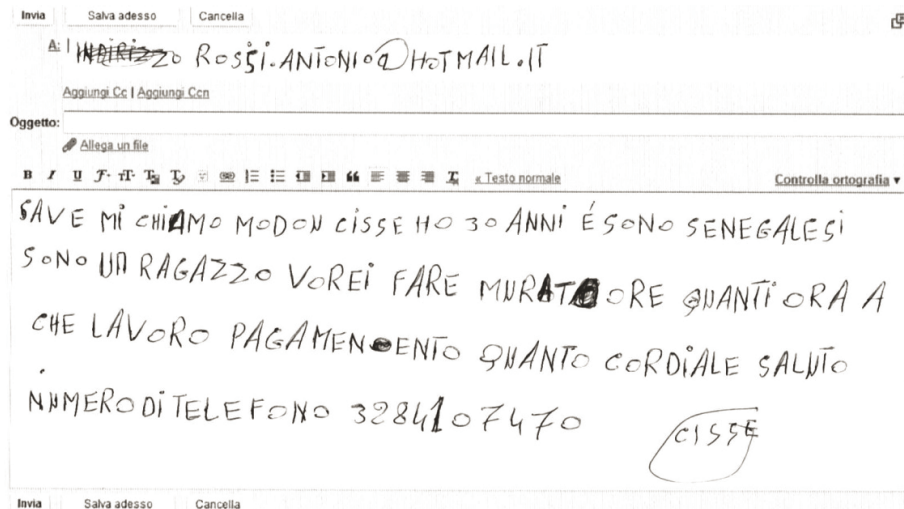 Invia Salva adesso Cancella
A: ROSSI.ANTONIO@HOTMAIL.IT
Aggiungi Cc | Aggiungi Ccn
Oggetto:
Allega un file
B I U « Testo normale Controlla ortografia ▾
SAVE MI CHIAMO MODON CISSE HO 30 ANNI É SONO SENEGALESI
SONO UN RAGAZZO VOREI FARE MURATORE QUANTI ORA A
CHE LAVORO PAGAMENENTO QUANTO CORDIALE SALUTO
NUMERO DI TELEFONO 3284107470 CISSE
Invia Salva adesso Cancella